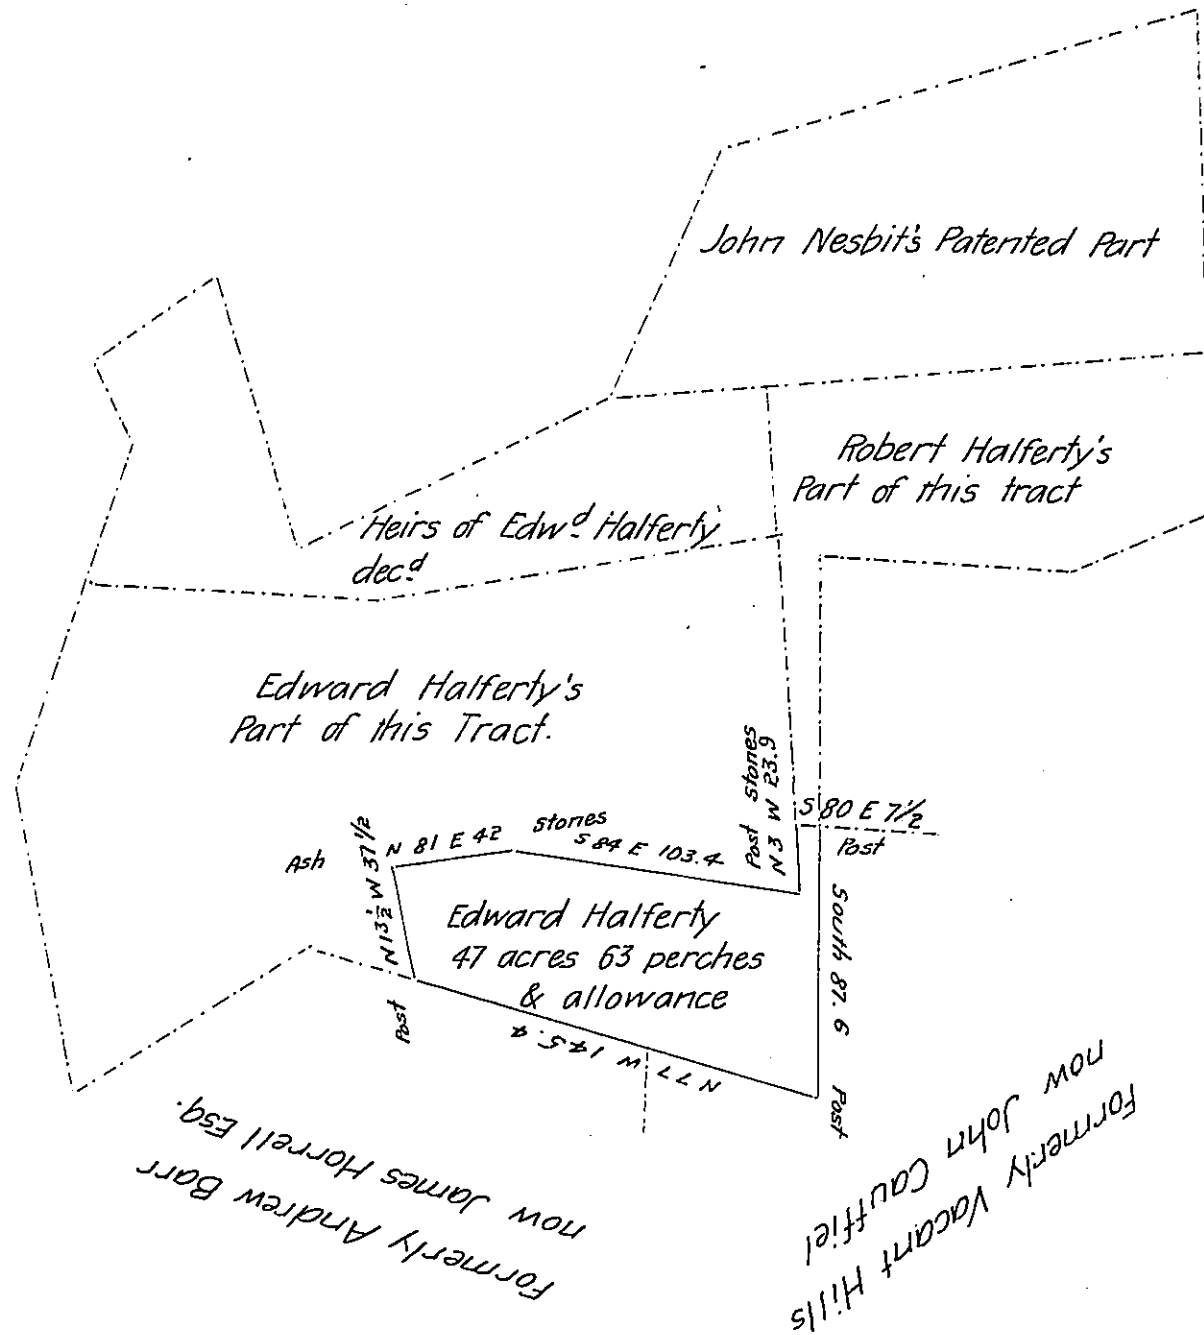 John Nesbit's Patented Part
Robert Halferty's
Part of this tract
Heirs of Edwd. Halferty
decd.
Edward Halferty's
Part of this Tract.
Ash
N 13½ W 37½
N 81 E 42
Stones
S 84 E 103.4
Post Stones
N 3 W 23.9
S 80 E 7½
Post
Edward Halferty
47 acres 63 perches
& allowance
South 87.6
Post
N 77 W 145.4
Post
Formerly Andrew Barr
now James Horrell Esq.
Formerly Vacant Hills
now John Cauffiel